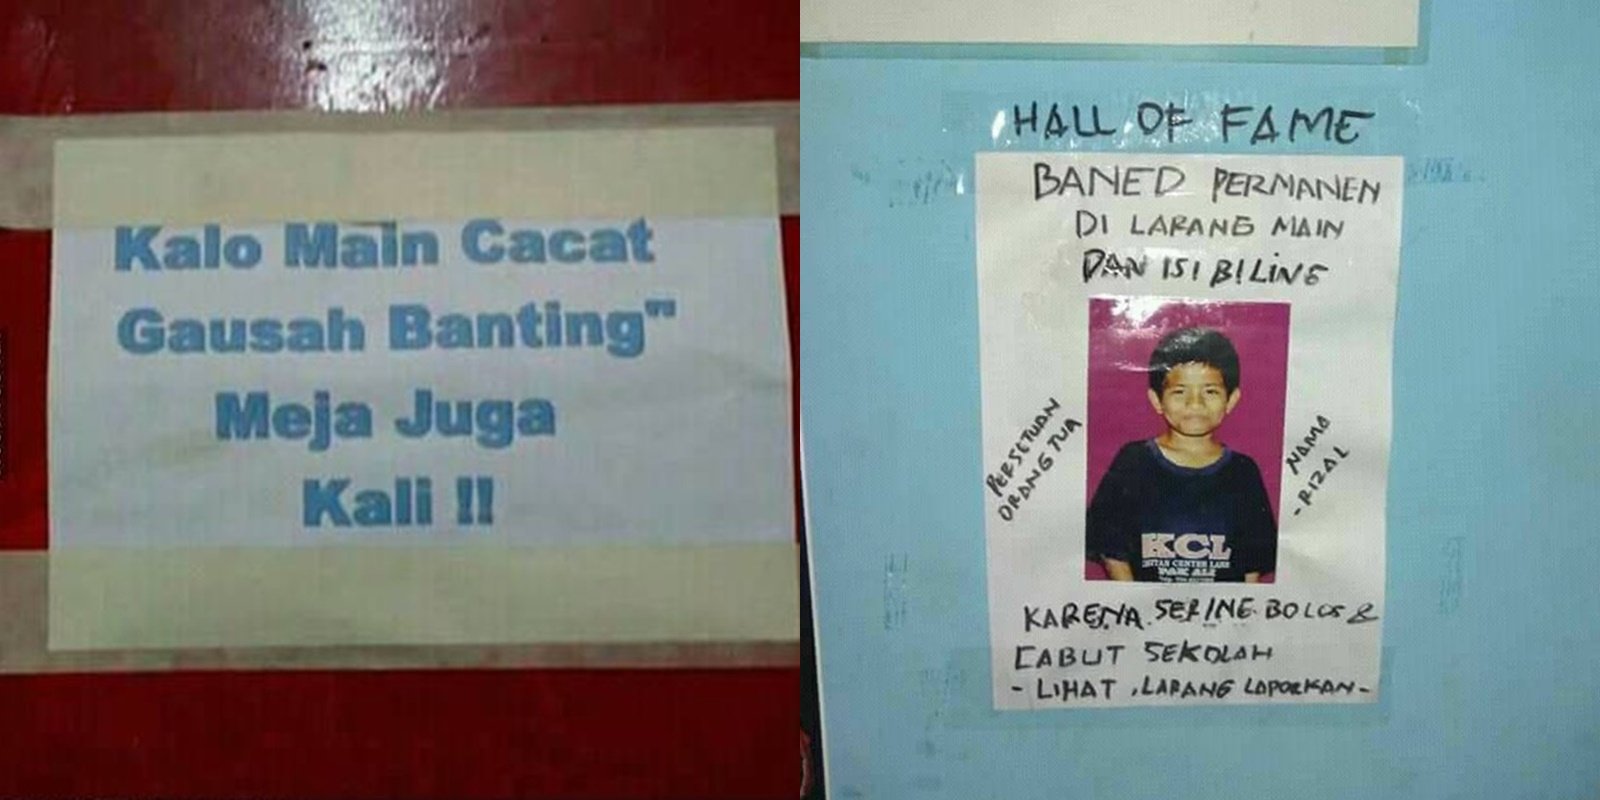 Kalo Main Cacat
Gausah Banting"
Meja Juga
Kali !!
HALL OF FAME
BANED PERMANEN
DI LARANG MAIN
DAN ISI BILING
PERSETUAN
ORANG TUA
NAMA
- RIZAL
KCL
PAK ALI
KARENA SERING BOLOS &
CABUT SEKOLAH
- LIHAT, LARANG LAPORKAN -